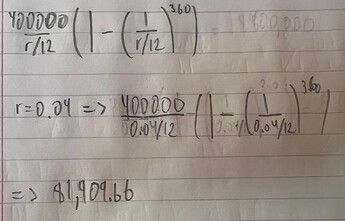 400000/(r/12) (1 - (1/(r/12))^360)
r=0.04 => 400000/(0.04/12) (1 - (1/(0.04/12))^360)
=> 81,909.66